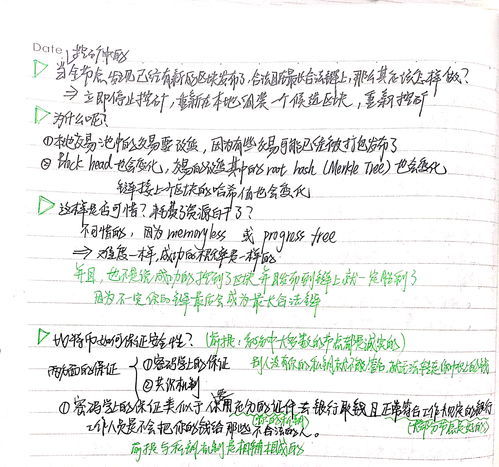 Date
挖矿中的
当全节点发现已经有新的区块发布了，合法且在最长合法链上，那么其应该怎样做？
⇒ 立即停止挖矿，重新在本地组装一个候选区块，重新挖矿
为什么呢？
①本地交易池中的交易要改变，因为有些交易可能已经被打包发布了
② Block head也会变化，交易的改变其中的 root hash (Merkle Tree) 也会变化
链接上个区块的哈希值也会变化
这样是否可惜？耗费了资源白干了？
不可惜的，因为 memoryless 或 progress free
⇒ 难度一样，成功的概率是一样的
并且，也不是说成功的挖到了区块并且发布到链上就一定胜利了
因为不一定你的链最后会成为最长合法链
比特币如何保证安全性？(前提：系统中大多数的节点都是诚实的)
两方面的保证
①密码学上的保证 别人没有你的私钥
②共识机制
①密码学上的保证类似于你拿合法的证件去银行取钱且正常银行工作人员是好的
工作人员是不会把你的钱给那些不合法的人。
前提与私钥机制是相辅相成的